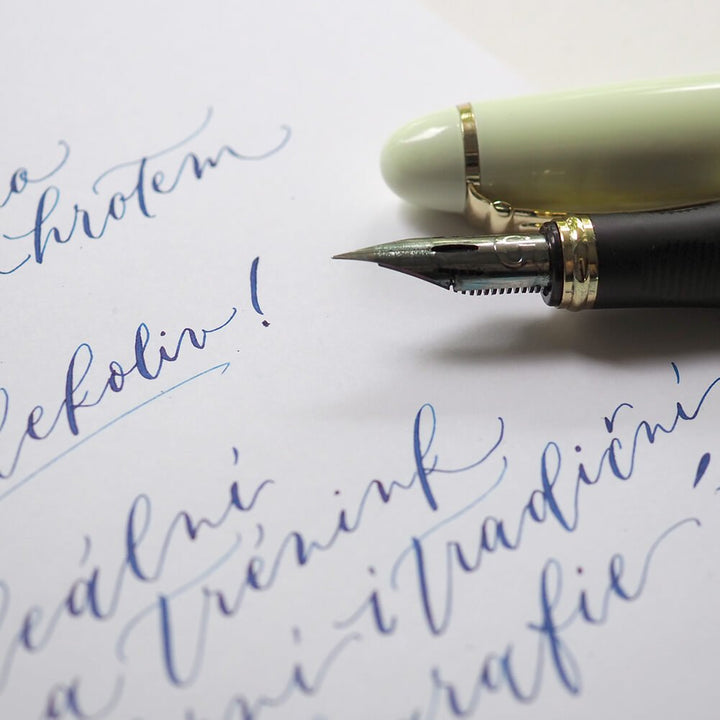 o
hrotem
dekoliv!
eální
a trénink
rní i tradiční
grafie!